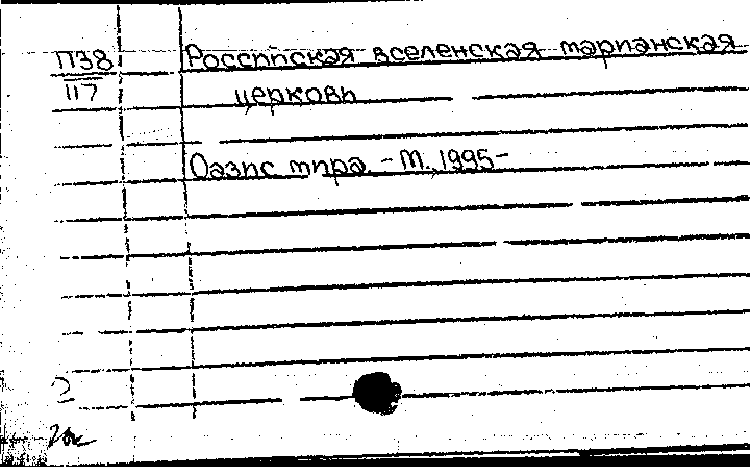 П38
117
Российская вселенская марианская
церковь
Оазис мира. - М. 1995-
2